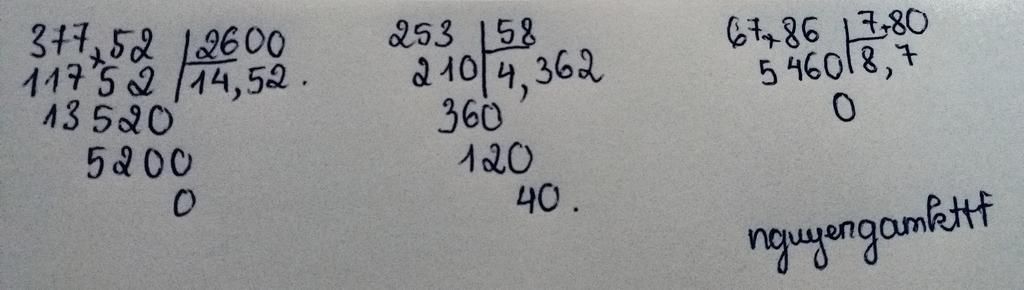 377,52 2600
117 52 14,52.
13 520
5200
0
253 58
210 4,362
360
120
40.
67,86 7,80
5 460 8,7
0
nguyengamkttf